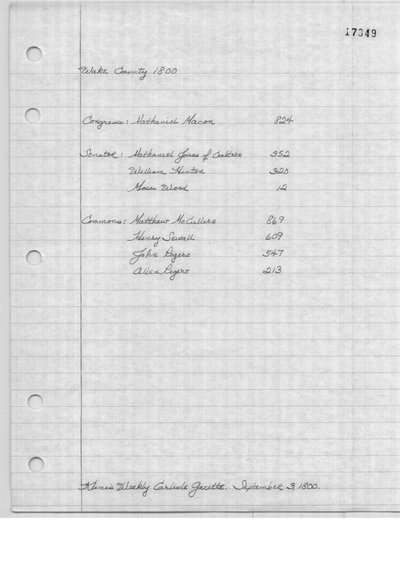 17349
Wake County 1800
Congress: Nathaniel Macon 824
Senator: Nathaniel Jones of Crabtree 352
William Hinton 320
Moses Wood 12
Commons: Matthew McCullers 869
Henry Sewell 609
John Rogers 547
Allen Rogers 213
Kline's Weekly Carlisle Gazette. September 3, 1800.